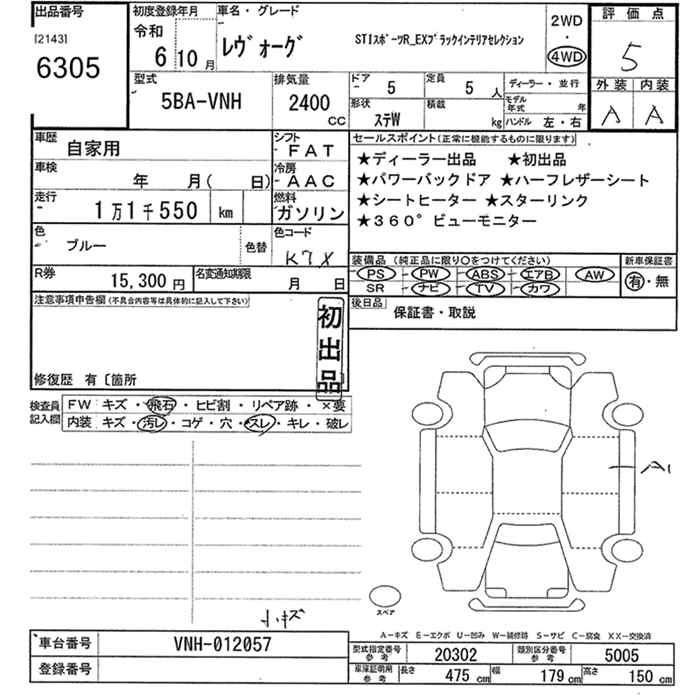 出品番号 初度登録年月 車名・グレード
[2143] 令和
6305 6 10月 レヴォーグ STIスポーツR_EXブラックインテリアセレクション 2WD
・
4WD
評価点
5
外装 内装
A A
型式 排気量 ドア 5 定員 5 人 ディーラー・並行
5BA-VNH 2400 CC 形状 ステW 積載 kg モデル年式 年
ハンドル 左・右
車歴 自家用 シフト FAT
車検 年 月( 日) 冷房 AAC
走行 1万1千550 km 燃料 ガソリン
色 ブルー 色替 色コード K7X
R券 15,300 円 名変通知期限 月 日
セールスポイント(正常に機能するものに限ります)
★ディーラー出品 ★初出品
★パワーバックドア ★ハーフレザーシート
★シートヒーター ★スターリンク
★360°ビューモニター
装備品 (純正品に限り○をつけてください) 新車保証書
PS PW ABS エアB AW 有・無
SR ナビ TV カワ
後日品
保証書・取説
注意事項申告欄(不具合内容等は具体的に記入して下さい)
初出品
修復歴 有〔箇所 〕
検査員記入欄 FW キズ・飛石・ヒビ割・リペア跡・×要
内装 キズ・汚レ・コゲ・穴・スレ・キレ・破レ
A1
スペア
小キズ
A-キズ E-エクボ U-凹み W-補修跡 S-サビ C-腐食 XX-交換済
車台番号 VNH-012057
登録番号
型式指定番号 参考 20302 類別区分番号 参考 5005
車庫証明用 参考 長さ 475 cm 幅 179 cm 高さ 150 cm